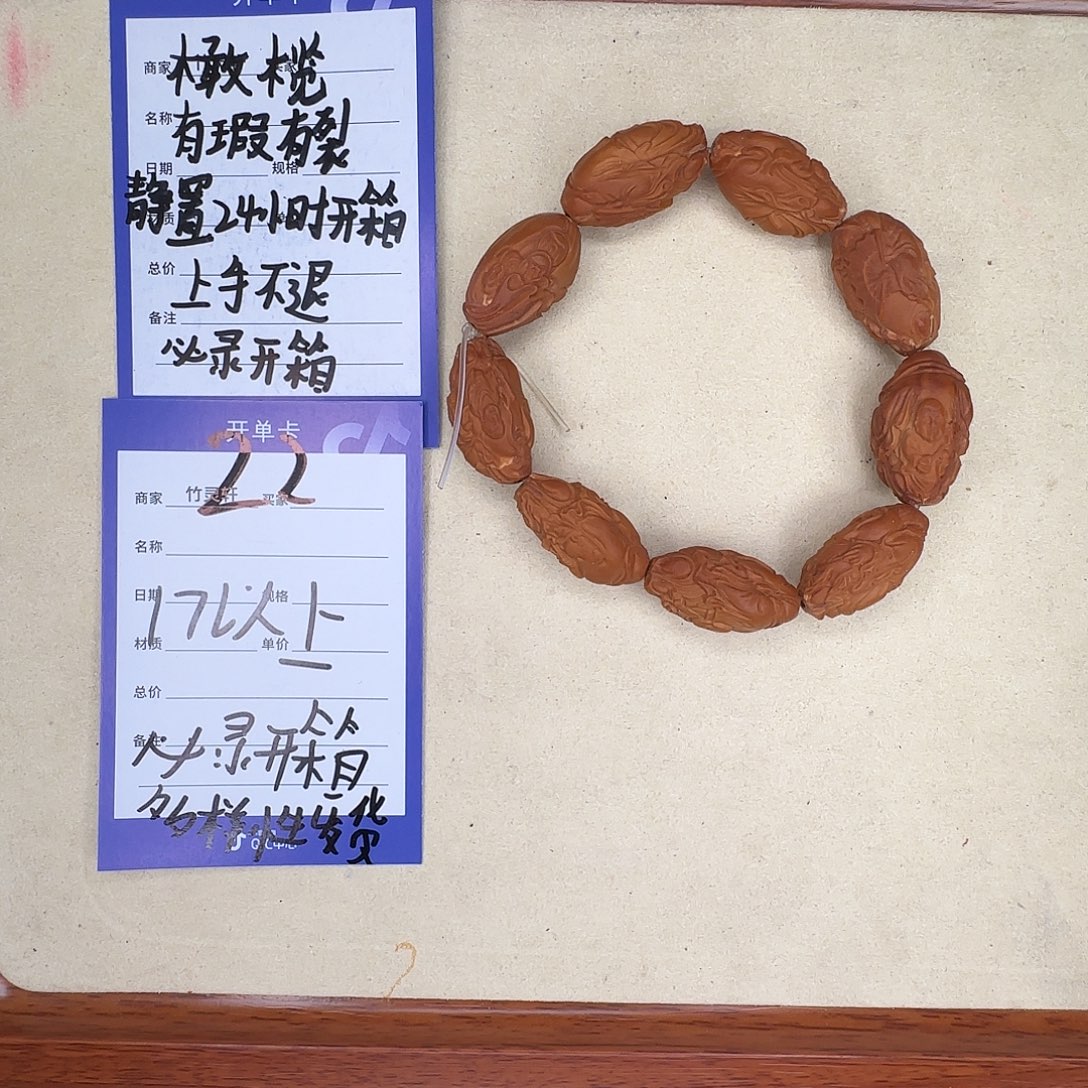 开单卡
商家 橄榄
名称 有瑕有裂
日期 规格
静置24小时开箱
总价 上手不退
备注
必录开箱
开单卡
22
商家 竹灵轩 买家
名称
日期 规格
17以上
材质 单价
总价
备注 必录开箱
多样性发货